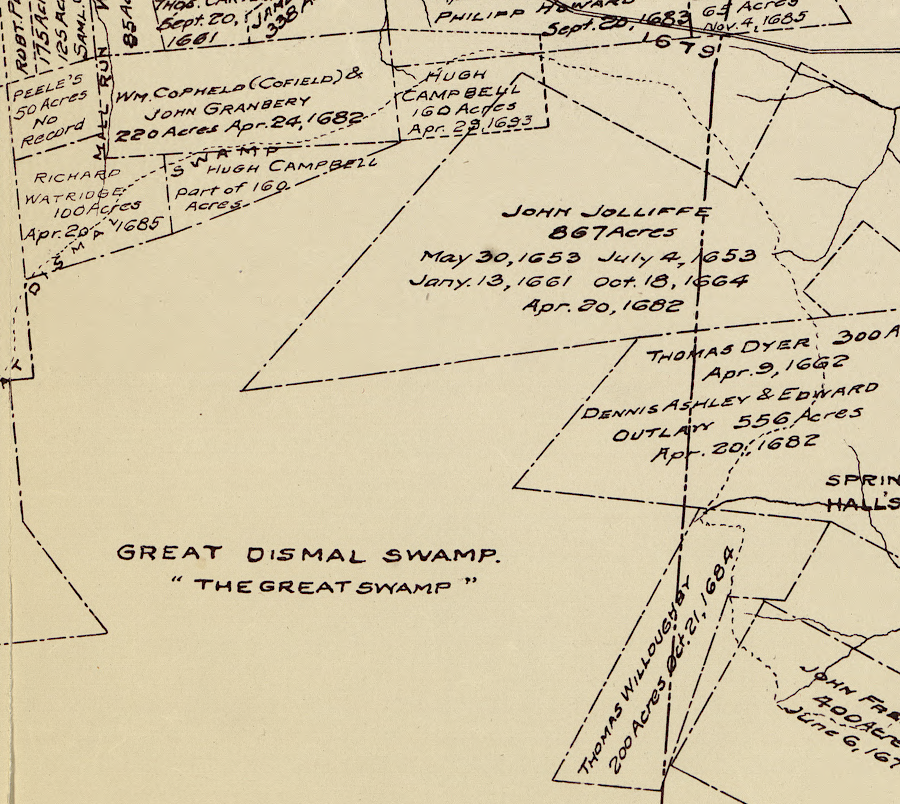 ROBT. P
175 Ac
125 Ac
SAML.
85 Ac
THOS. CAR
Sept. 20,
1661
338 A
PHILIPP HOWARD
Sept. 20, 1683
65 Acres
Nov. 4, 1685
1679
PEELE'S
50 Acres
No
Record
MALL RUN
WM. COPHELD (COFIELD) &
JOHN GRANBERY
220 Acres Apr. 24, 1682
HUGH
CAMPBELL
160 Acres
Apr. 29, 1693
DISMAL SWAMP
RICHARD
WATRIDGE
100 Acres
Apr. 20, 1685
HUGH CAMPBELL
part of 160
Acres.
JOHN JOLLIFFE
867 Acres
May 30, 1653 July 4, 1653
Jany. 13, 1661 Oct. 18, 1664
Apr. 20, 1682
THOMAS DYER 300 A
Apr. 9, 1662
DENNIS ASHLEY & EDWARD
OUTLAW 556 Acres
Apr. 20, 1682
SPRIN
HALL'S
GREAT DISMAL SWAMP.
"THE GREAT SWAMP"
THOMAS WILLOUGHBY
200 Acres Oct. 21, 1684
JOHN FRE
400 Acre
June 6, 167